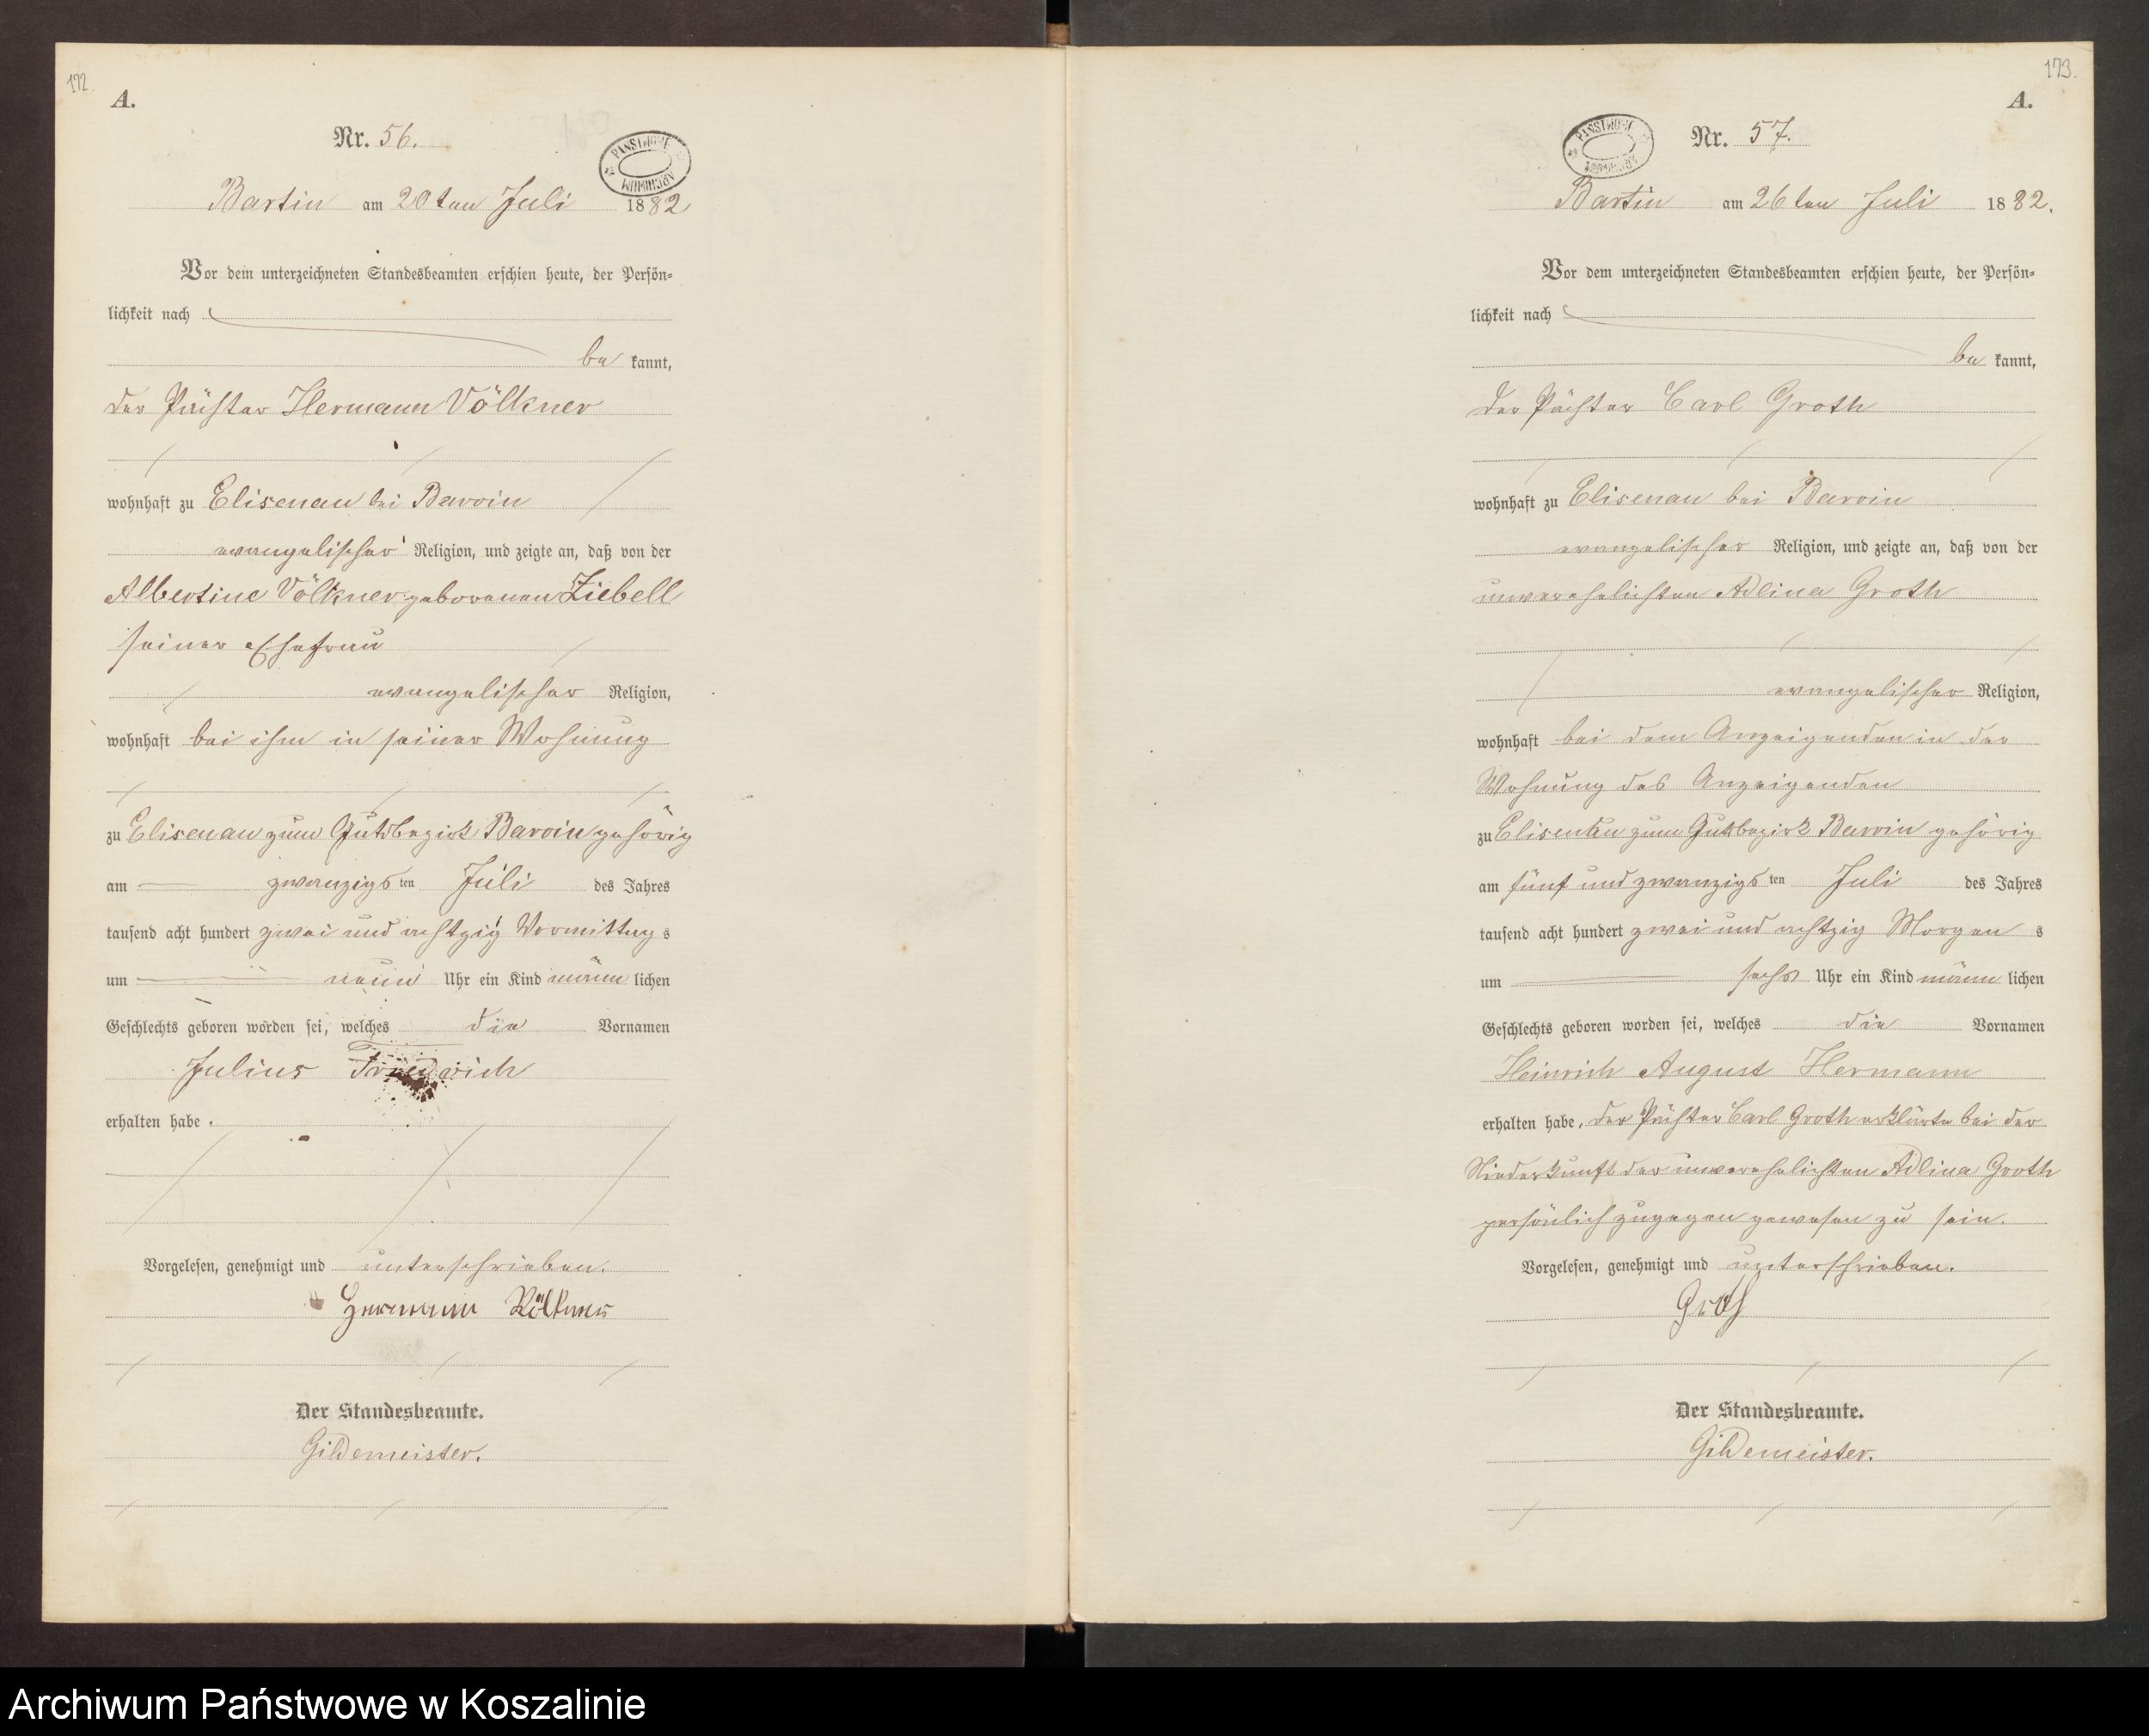 172.
A.
Nr. 56.
PAŃSTWOWE ARCHIWUM
Bartin am 20ten Juli 1882
Vor dem unterzeichneten Standesbeamten erschien heute, der Persön-
lichkeit nach
be kannt,
der Pächter Hermann Völkner
wohnhaft zu Elisenau bei Barvin
evangelischer Religion, und zeigte an, daß von der
Albertine Völkner geborenen Ziebell
seiner Ehefrau
evangelischer Religion,
wohnhaft bei ihm in seiner Wohnung
zu Elisenau zum Gutsbezirk Barvin gehörig
am zwanzigsten Juli des Jahres
tausend acht hundert zwei und achtzig Vormittags
um neun Uhr ein Kind männlichen
Geschlechts geboren worden sei, welches die Vornamen
Julius Friedrich
erhalten habe.
Vorgelesen, genehmigt und unterschrieben.
Hermann Völkner
Der Standesbeamte.
Gildemeister.
173.
A.
Nr. 57.
PAŃSTWOWE ARCHIWUM
Bartin am 26ten Juli 1882.
Vor dem unterzeichneten Standesbeamten erschien heute, der Persön-
lichkeit nach
be kannt,
der Pächter Carl Groth
wohnhaft zu Elisenau bei Barvin
evangelischer Religion, und zeigte an, daß von der
unverehelichten Adlina Groth
evangelischer Religion,
wohnhaft bei dem Anzeigenden in der
Wohnung des Anzeigenden
zu Elisenau zum Gutsbezirk Barvin gehörig
am fünf und zwanzigsten Juli des Jahres
tausend acht hundert zwei und achtzig Morgens
um sechs Uhr ein Kind männlichen
Geschlechts geboren worden sei, welches die Vornamen
Heinrich August Hermann
erhalten habe, der Pächter Carl Groth erklärte bei der
Niederkunft der unverehelichten Adlina Groth
persönlich zugegen gewesen zu sein.
Vorgelesen, genehmigt und unterschrieben.
Groth
Der Standesbeamte.
Gildemeister.
Archiwum Państwowe w Koszalinie